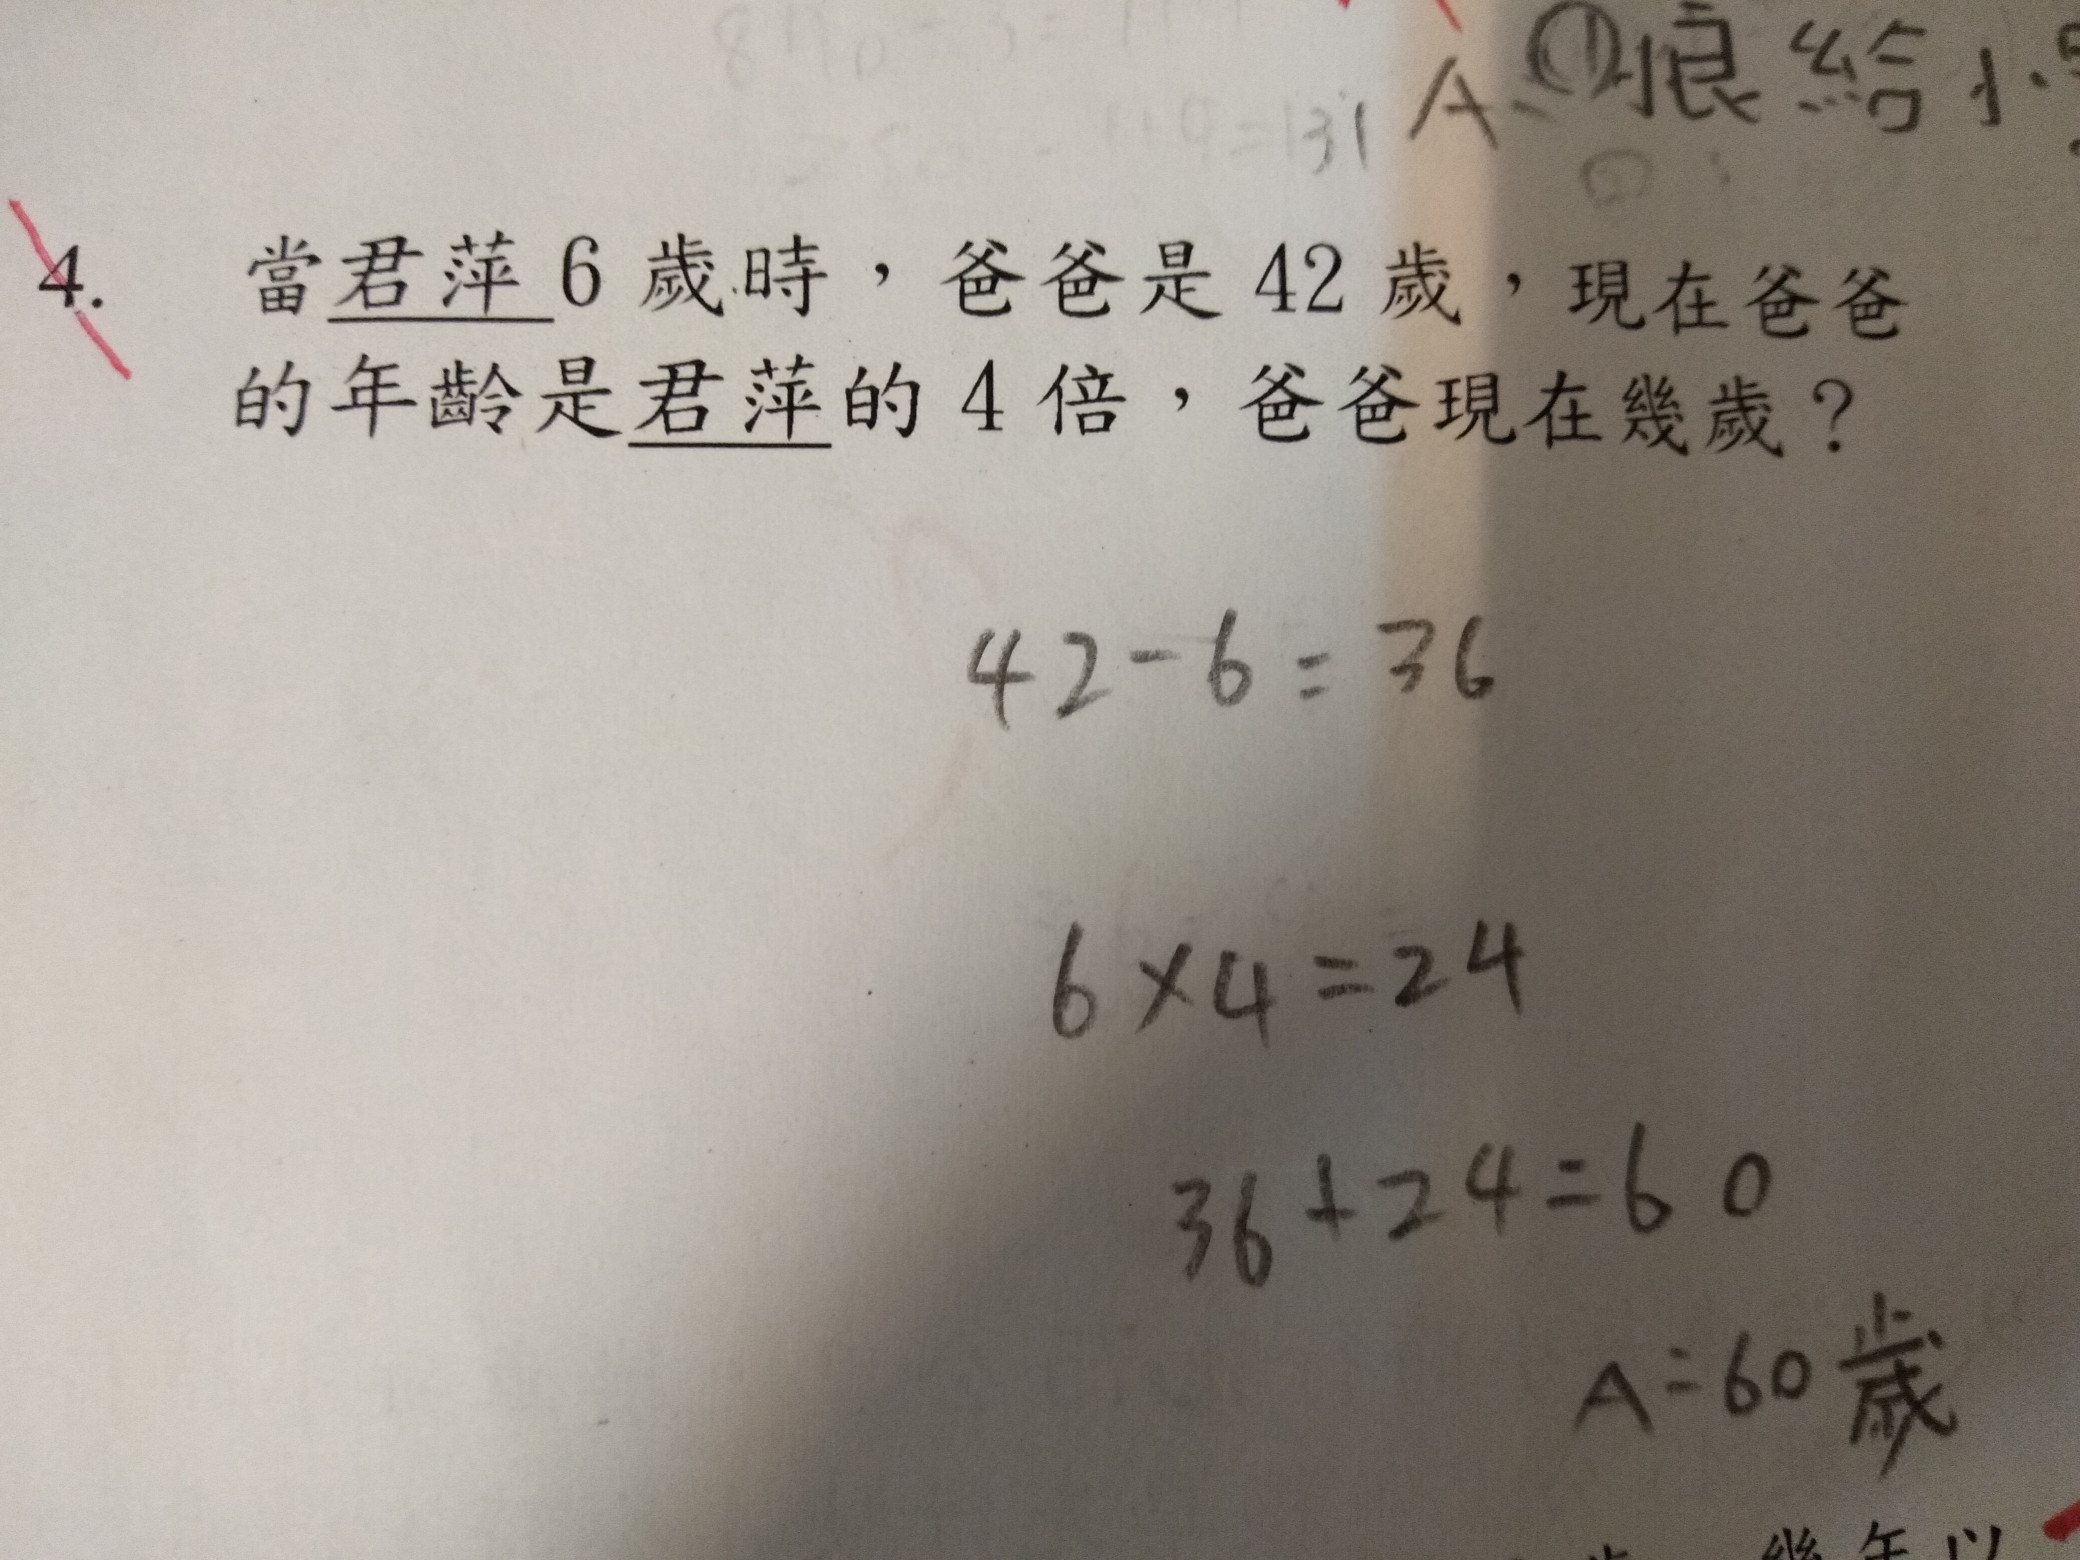 A=①很給小
4. 當君萍6歲時，爸爸是42歲，現在爸爸
的年齡是君萍的4倍，爸爸現在幾歲？
42-6=36
6×4=24
36+24=60
A=60歲
幾年以